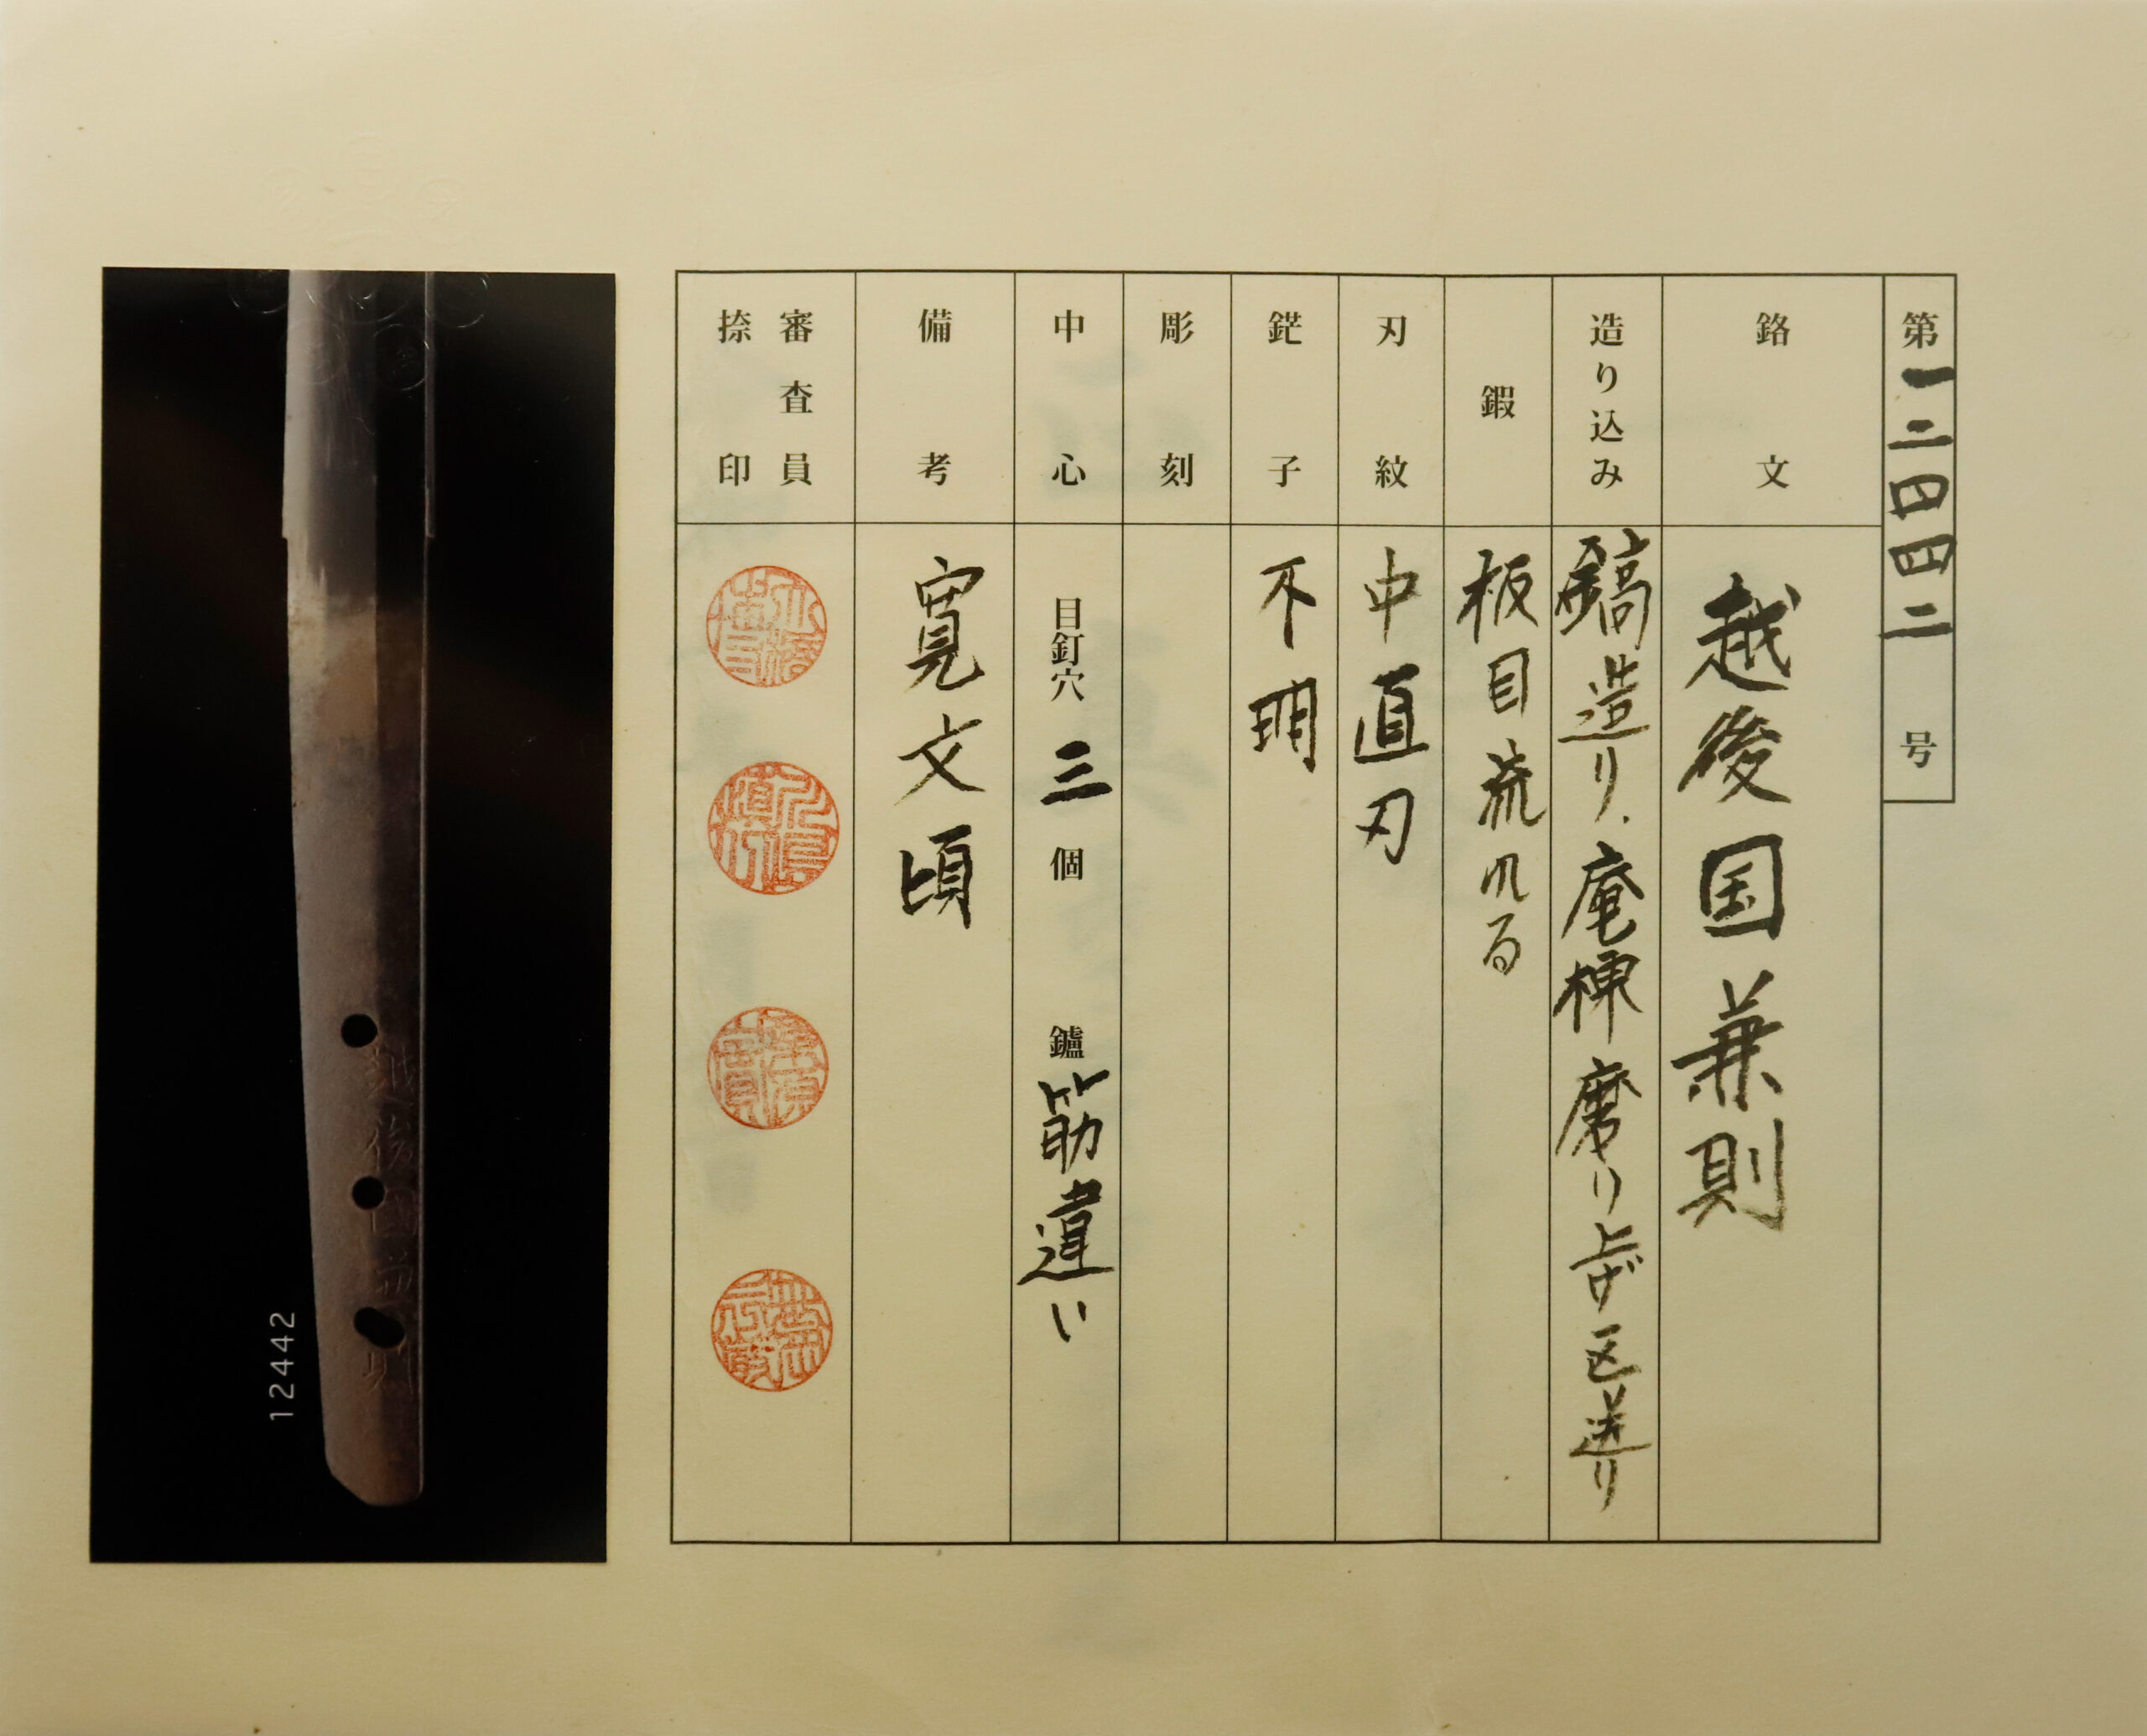 第一二四四二号
銘文 越後国兼則
造り込み 鎬造り、庵棟磨り上げ区送り
鍜 板目流れる
刃紋 中直刃
鋩子 不明
彫刻
中心 目釘穴 三 個 鑢 筋違い
備考 寛文頃
審査員
捺印
12442